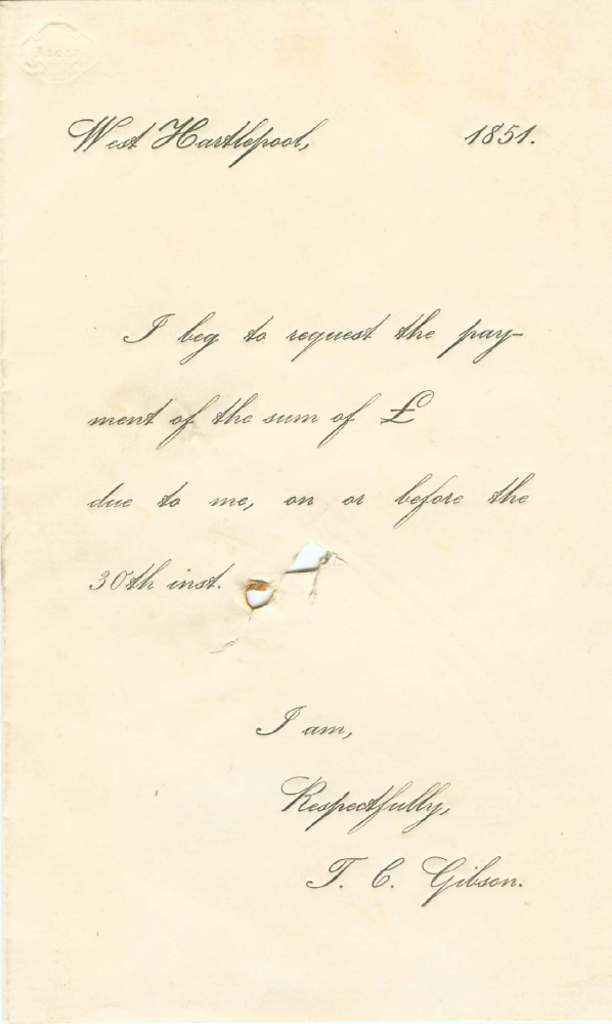 West Hartlepool, 1851.
I beg to request the pay-
ment of the sum of £
due to me, on or before the
30th inst.
I am,
Respectfully,
T. C. Gibson.